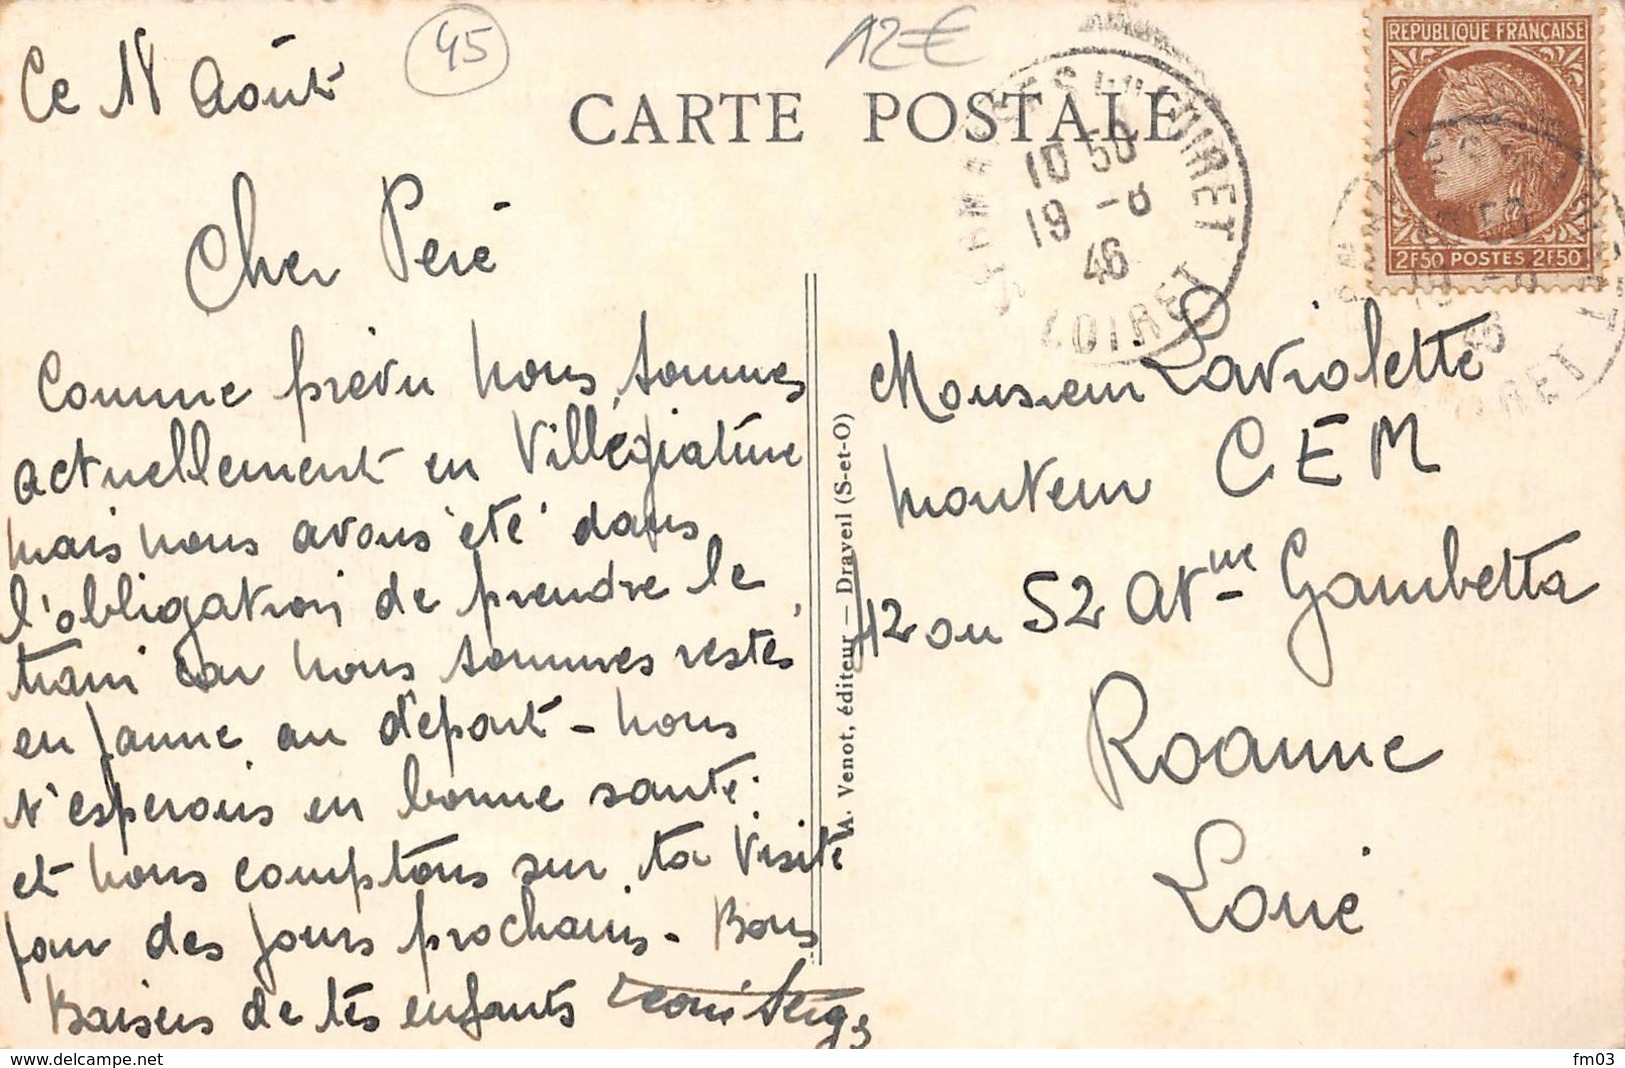 Ce 18 Août
45
12€
CARTE POSTALE
REPUBLIQUE FRANÇAISE
2F50 POSTES 2F50
10 50
19 -8
46
LOIRET
Cher Père
Comme prévu nous sommes
actuellement en Villégiature
mais nous avons été dans
l'obligation de prendre le
train car nous sommes restés
en panne au départ - nous
t'espérons en bonne santé.
et nous comptons sur ta visite
pour des jours prochains - Bons
Baisers de tes enfants
A. Venot, éditeur — Draveil (S-et-O)
Monsieur Laviolette
monteur CEM
42 ou 52 avnue Gambetta
Roanne
Loire
www.delcampe.net
fm03